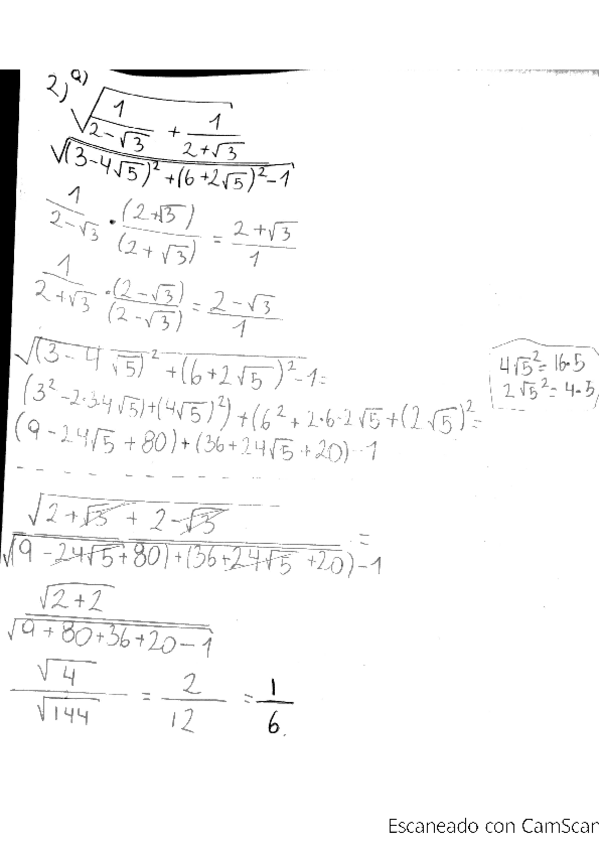 2) a)
√(1/(2-√3) + 1/(2+√3))
√((3-4√5)² + (6+2√5)² - 1)
1/(2-√3) · (2+√3)/(2+√3) = (2+√3)/1
1/(2+√3) · (2-√3)/(2-√3) = (2-√3)/1
√((3-4√5)² + (6+2√5)² - 1 =
4√5² = 16·5
2√5² = 4·5
(3² - 2·3·4√5) + (4√5)²) + (6² + 2·6·2√5 + (2√5)² =
(9 - 24√5 + 80) + (36 + 24√5 + 20) - 1
√(2+√3 + 2-√3) =
√((9 - 24√5 + 80) + (36 + 24√5 + 20) - 1
√(2+2)
√(9+80+36+20-1)
√4/√144 = 2/12 = 1/6.
Escaneado con CamScan